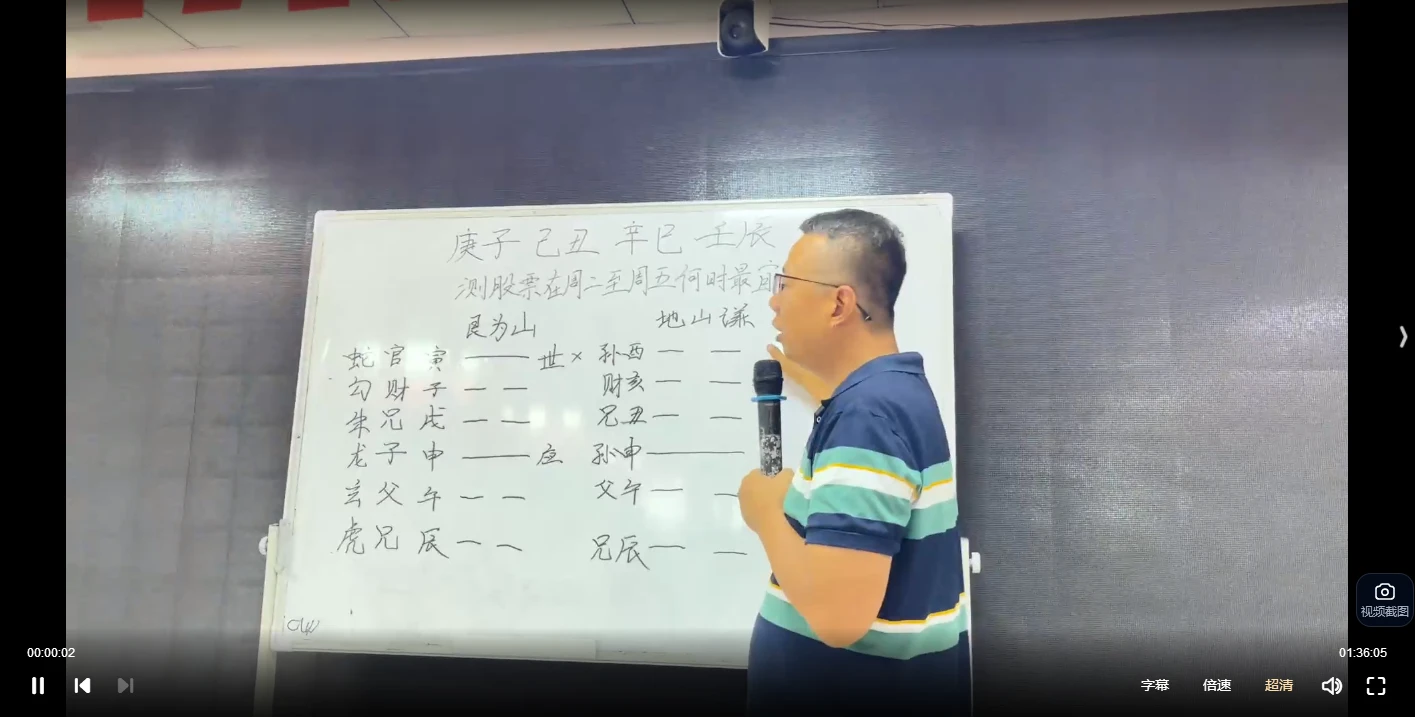 庚子 己丑 辛巳 壬辰
测股票在周二至周五何时最宜
艮为山 地山谦
蛇官寅 世× 孙酉
勾财子 财亥
朱兄戌 兄丑
龙子申 应 孙申
玄父午 父午
虎兄辰 兄辰
视频截图
00:00:02 01:36:05
字幕 倍速 超清